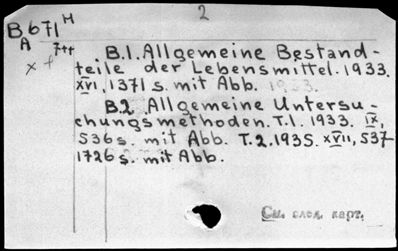 2
B671 M
A 7++
x +
B.1. Allgemeine Bestand-
teile der Lebensmittel. 1933.
XVI, 1371 s. mit Abb. 1933.
B.2 Allgemeine Untersu-
chungsmethoden. T.1. 1933. IX,
536 s. mit Abb. T.2. 1935. XVII, 537-
1726 s. mit Abb.
См. след. карт.